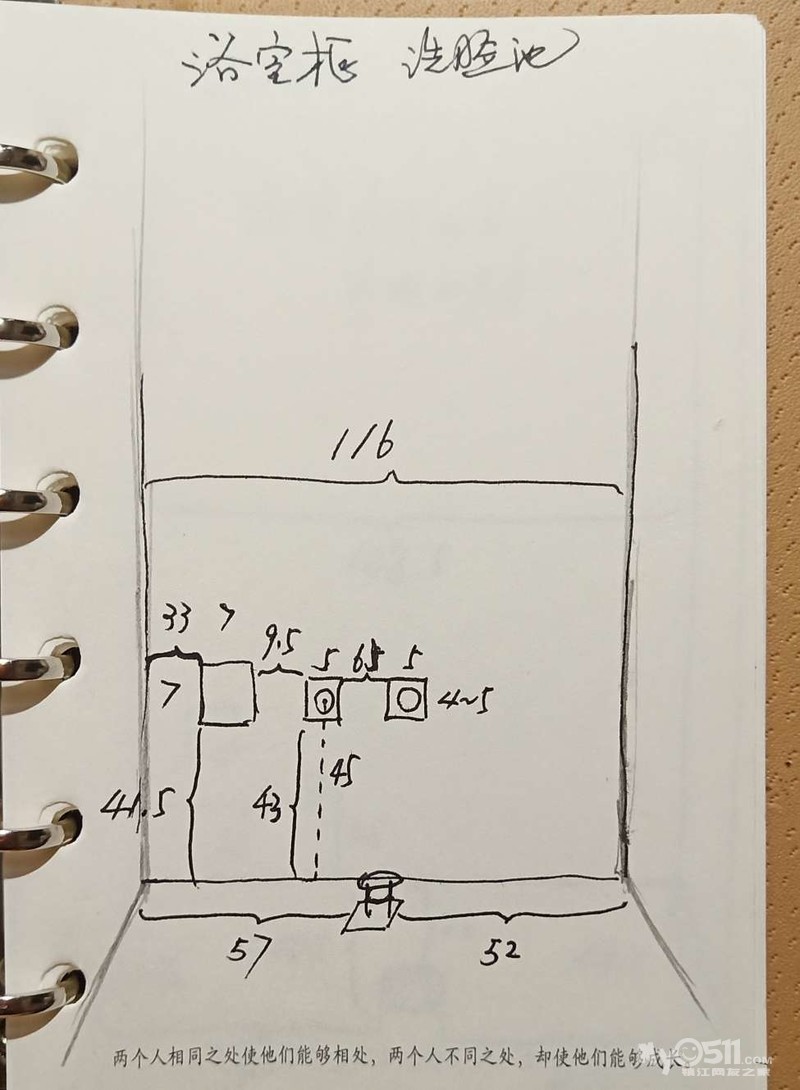 浴室柜 洗脸池
116
33 7
9.5
5 6.5 5
7
4~5
45
41.5
43
57
52
两个人相同之处使他们能够相处，两个人不同之处，却使他们能够成长。
0511.COM
镇江网友之家